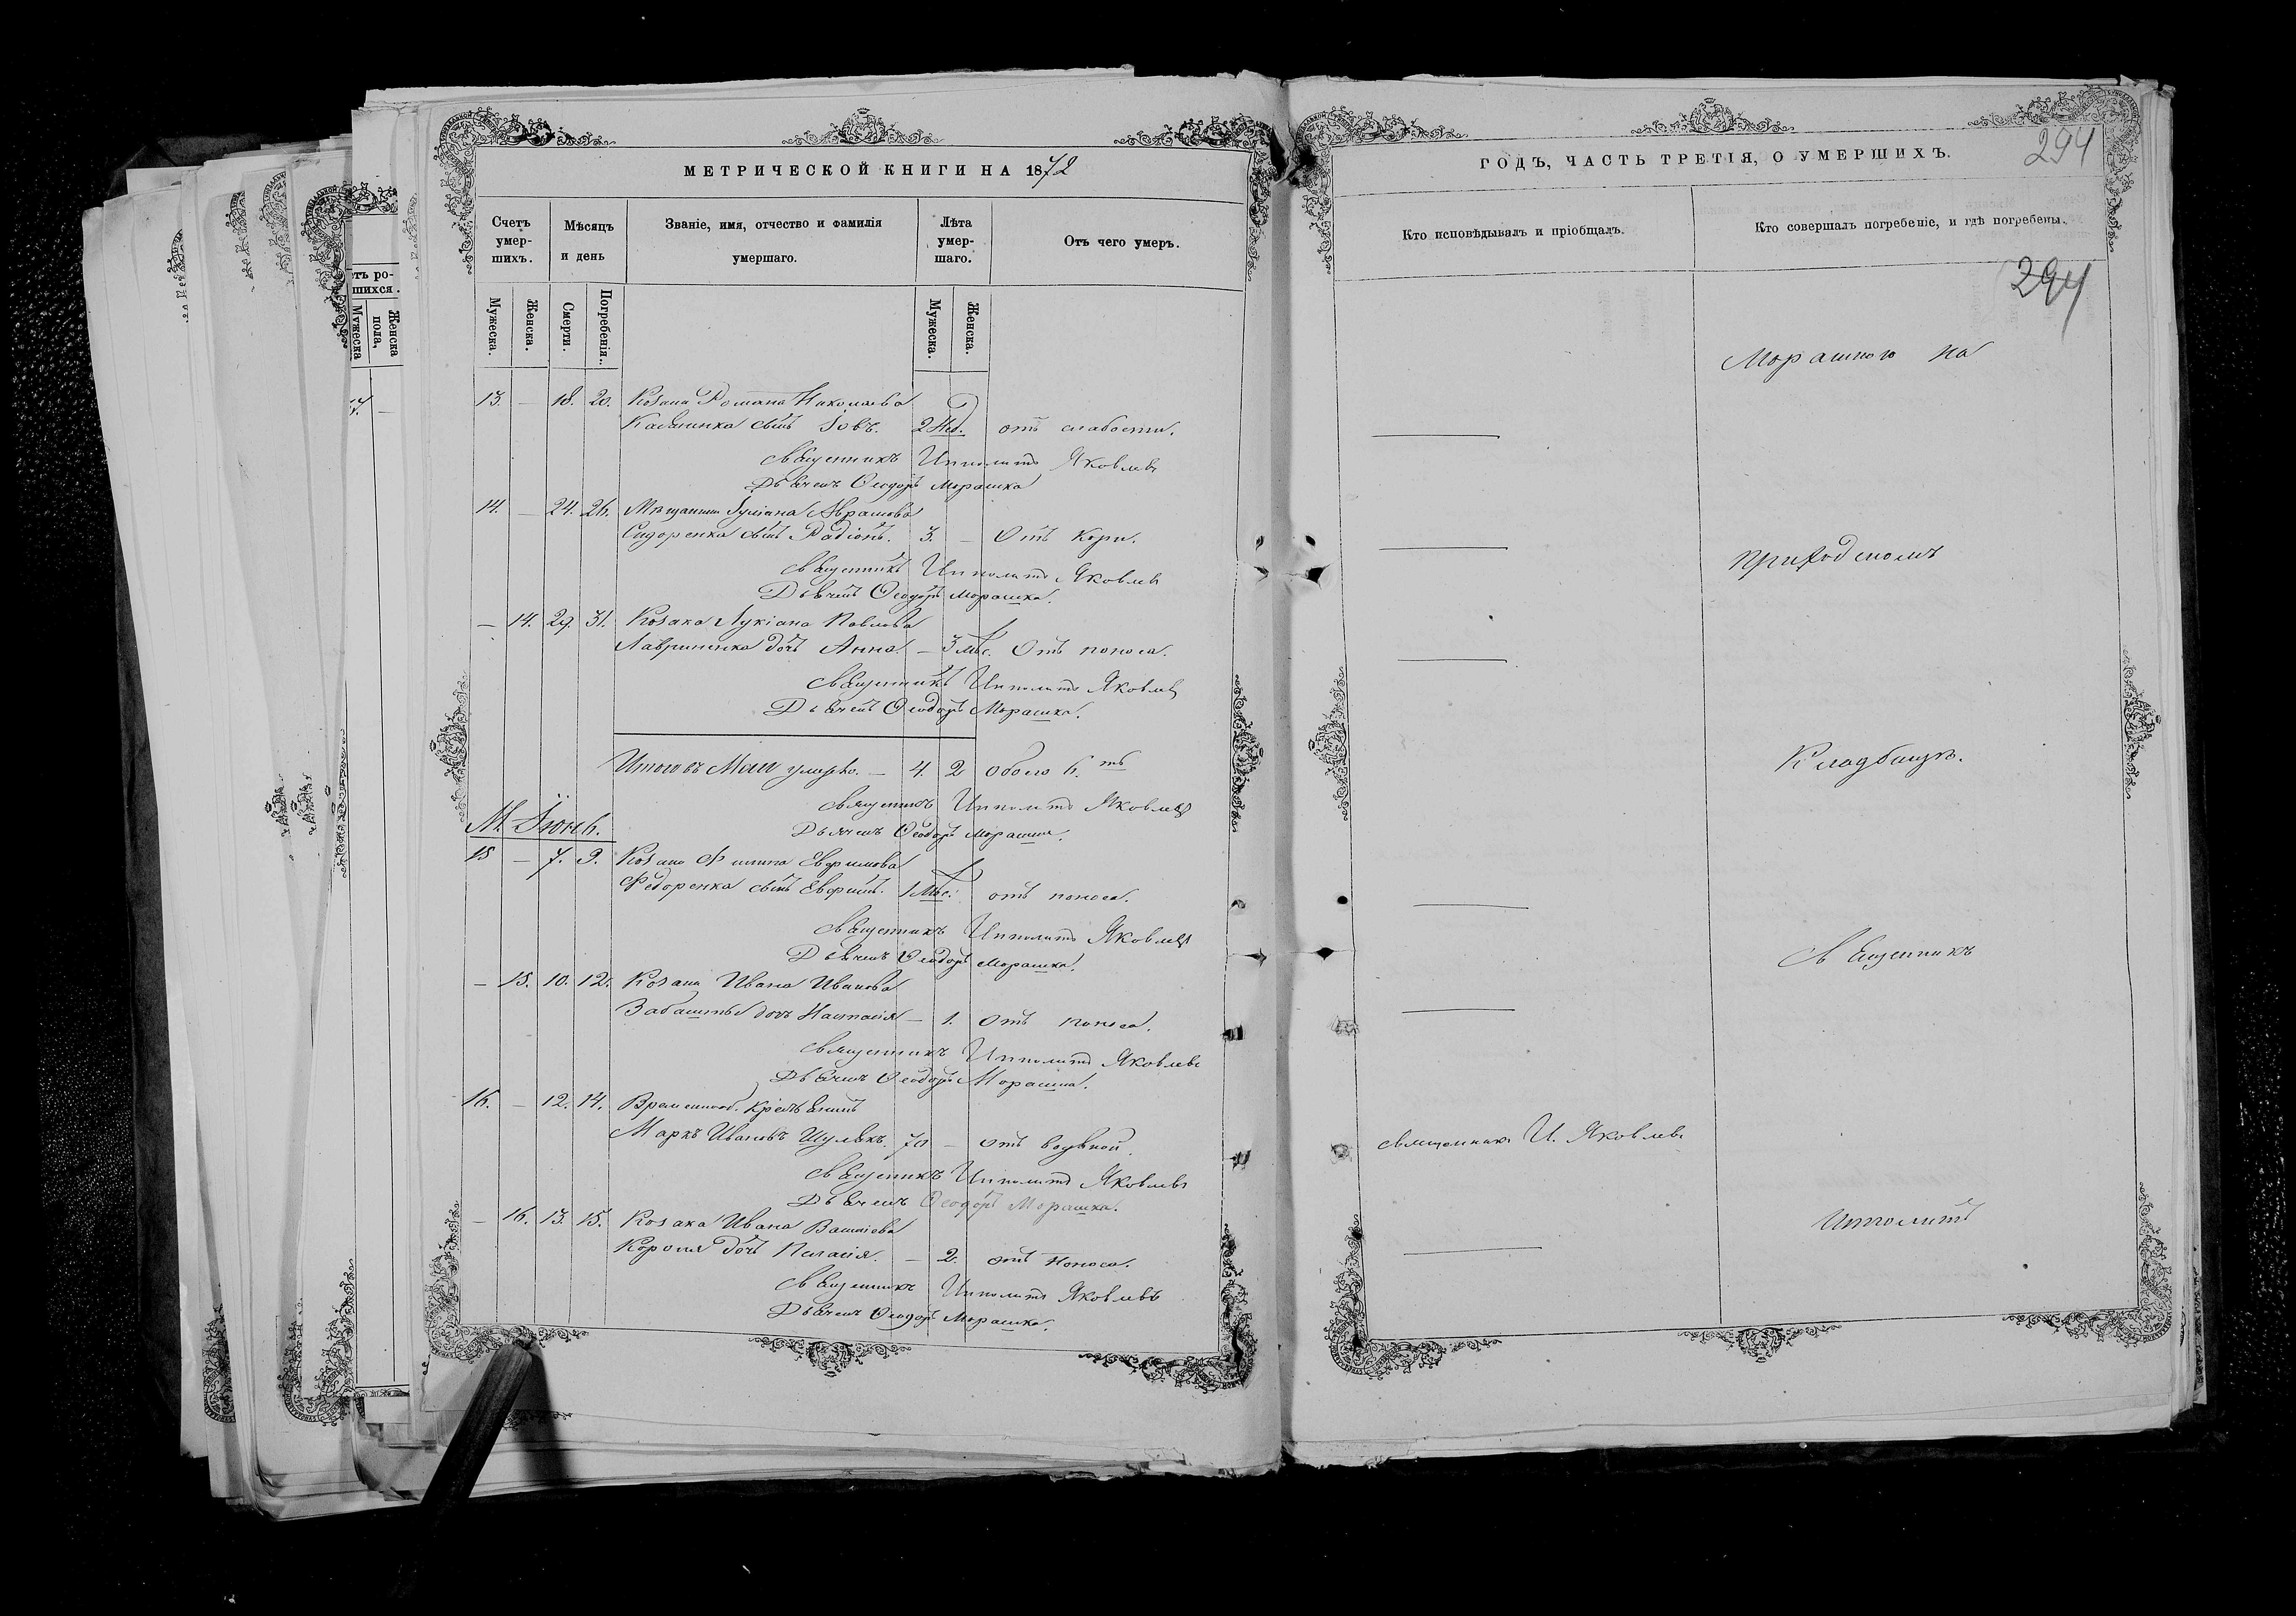 МЕТРИЧЕСКОЙ КНИГИ НА 1872
Счетъ умер-шихъ.
Мѣсяцъ и день
Званіе, имя, отчество и фамилія умершаго.
Лѣта умер-шаго.
Отъ чего умеръ.
Мужеска.
Женска.
Смерти.
Погребенія.
Мужеска.
Женска.
13. — 18. 20. Козака Романа Николаева
сынъ Іовъ. 2 Нед. отъ слабости.
Священникъ Ипполитъ Яковлевъ
Дьячекъ Ѳеодоръ Морашко
14. — 24. 26. Мѣщанина Іуліана Аврамова
Сидоренка сынъ Радіонъ. 3. — Отъ кори.
Священникъ Ипполитъ Яковлевъ
Дьячекъ Ѳеодоръ Морашко.
— 14. 29. 31. Козака Лукіана Павлова
Лавриненка дочь Анна. — 3 мѣс. Отъ поноса.
Священникъ Ипполитъ Яковлевъ
Дьячекъ Ѳеодоръ Морашко.
Итого въ Маи умерло. — 4. 2 обоего 6.ть
Священникъ Ипполитъ Яковлевъ
Дьячекъ Ѳеодоръ Морашко.
М. Іюнь.
15 — 7. 9. Козака Филипа Евфимова
Федоренка сынъ Евфимъ. 1 Мѣс. отъ поноса.
Священникъ Ипполитъ Яковлевъ
Дьячекъ Ѳеодоръ Морашко.
— 15. 10. 12. Козака Ивана Иванова
Забашты дочь Настасія — 1. Отъ поноса.
Священникъ Ипполитъ Яковлевъ
Дьячекъ Ѳеодоръ Морашко.
16. — 12. 14. Временнооб. крестьянинъ
Маркъ Ивановъ Шулякъ. 70 — отъ водяной.
Священникъ Ипполитъ Яковлевъ
Дьячекъ Ѳеодоръ Морашко.
— 16. 13. 15. Козака Ивана
дочь Пелагія. — 2. отъ поноса.
Священникъ Ипполитъ Яковлевъ
Дьячекъ Ѳеодоръ Морашко.
ГОДЪ, ЧАСТЬ ТРЕТІЯ, О УМЕРШИХЪ.
294
Кто исповѣдывалъ и пріобщалъ.
Кто совершалъ погребеніе, и гдѣ погребены.
294
Морашкою на
приходскомъ
Кладбищѣ.
Священникъ
Священникъ И. Яковлевъ
Ипполитъ